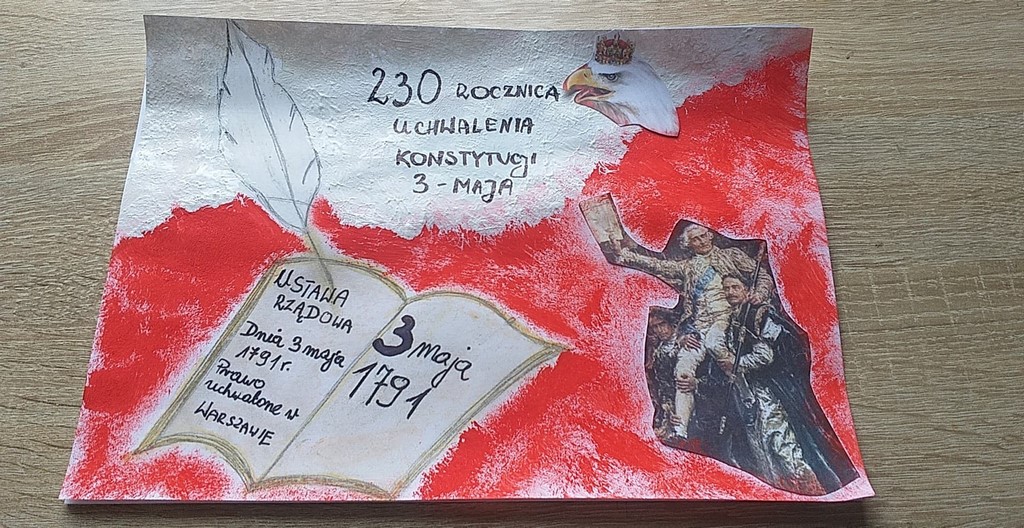 230 ROCZNICA
UCHWALENIA
KONSTYTUCJI
3-MAJA
USTAWA
RZĄDOWA
Dnia 3 maja
1791r.
Prawo
uchwalone w
WARSZAWIE
3 maja
1791